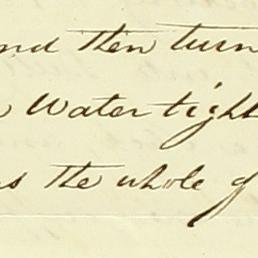 and then turn
Water tight
as the whole of